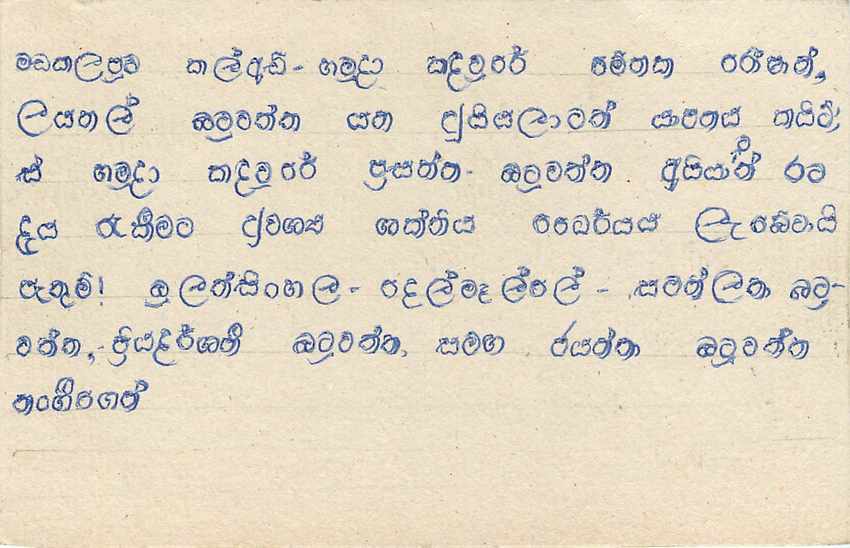 මඩකලපුව කල්අඩි - හමුදා කඳවුරේ මේනක රෝෂාන්,
ලයනල් ඔටුවත්ත යන ද්‍රැසියලාටත් යාපනය කයිට්
ස් හමුදා කඳවුරේ ප්‍රසන්න ඔටුවත්ත අයියාටත් රට
දැය රැකීමට අවශ්‍ය ශක්තිය ධෛර්යය ලැබේවායි
පැතුම්! බුලත්සිංහල - දෙල්මෙල්ලේ - සමන්ලතා ඔටු-
වත්ත, ප්‍රියදර්ශනී ඔටුවත්ත, සමඟ ජයන්තා ඔටුවත්ත
නංගීගෙන්